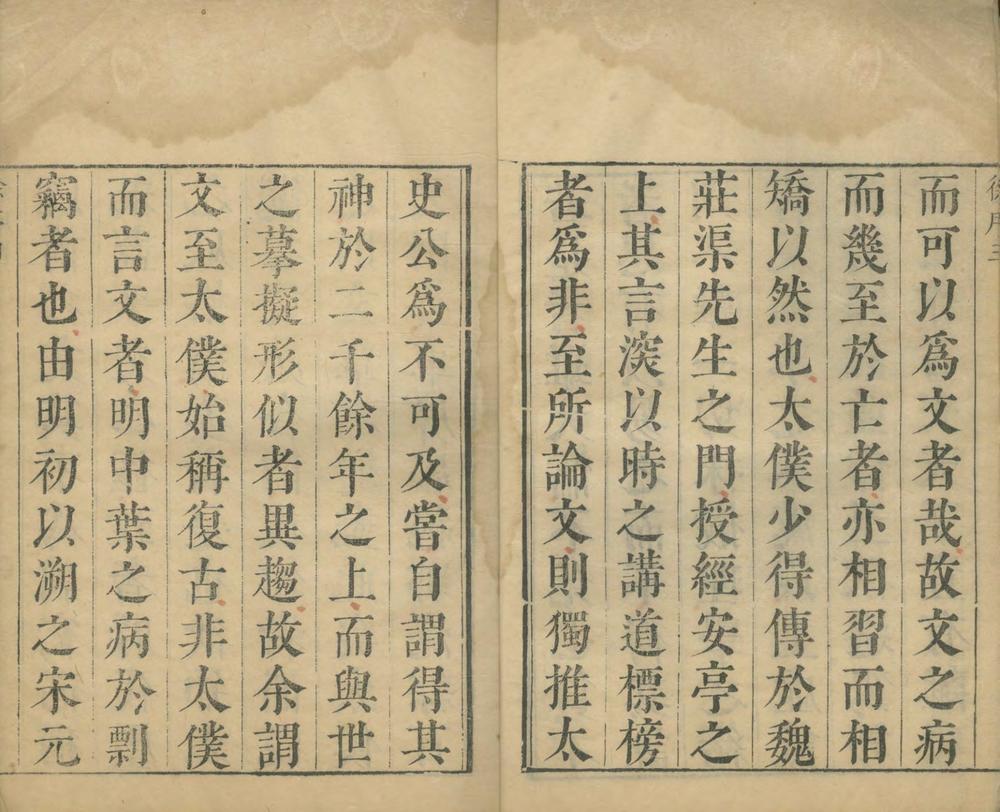 而可以爲文者哉故文之病
而幾至於亡者亦相習而相
矯以然也太僕少得傳於魏
莊渠先生之門授經安亭之
上其言深以時之講道標榜
者爲非至所論文則獨推太
史公爲不可及嘗自謂得其
神於二千餘年之上而與世
之摹擬形似者異趨故余謂
文至太僕始稱復古非太僕
而言文者明中葉之病於剽
竊者也由明初以溯之宋元